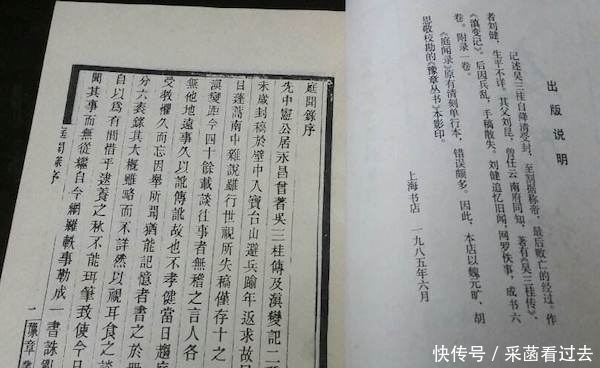 出版说明
记述吴三桂自降清受封，至割据称帝，最后败亡的经过。作
者刘健，生平不详。其父刘昆，曾任云南府同知，著有《吴三桂传》、
《滇变记》，后因兵乱，手稿散失。刘健追忆旧闻，网罗佚事，成书六
卷。附录一卷。
《庭闻录》原有清刻单行本，错误颇多。因此，本店以魏元旷、胡
思敬校勘的《豫章丛书》本影印。
上海书店 一九八五年六月
庭聞錄序
先中憲公居永昌嘗著吳三桂傳及滇變記二
未成封稿於壁中入寶台山避兵踰年返求故
目蓬蒿南中雜說雖行世視所失稿僅存十之
滇變距今四十餘載談往事者無稽之言人各
無他地遠事久以訛傳訛故也不孝健當日趨庭
受教懼久而忘因舉所聞猶能記憶者書之於
分六卷錄其大概雖略而不詳然以視耳食之談
自以爲有間惜乎逮養之秋不能珥筆致使今日
聞其事而無從纘自今網羅軼事勒成一書誅
庭聞錄序
一
豫章
快传号／采菌看过去